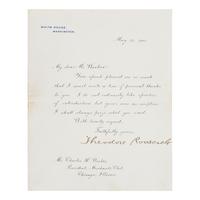 WHITE HOUSE,
WASHINGTON.
My dear Mr.
Your speech pleased me so much
that I must write a line of personal thanks
to you. I do not ordinarily like speeches
of introduction but yours was an exception
I shall always prize what you said.
With hearty regard,
Faithfully yours,
Theodore Roosevelt
Mr. Charles H.
President, Merchants Club
Chicago, Illinois